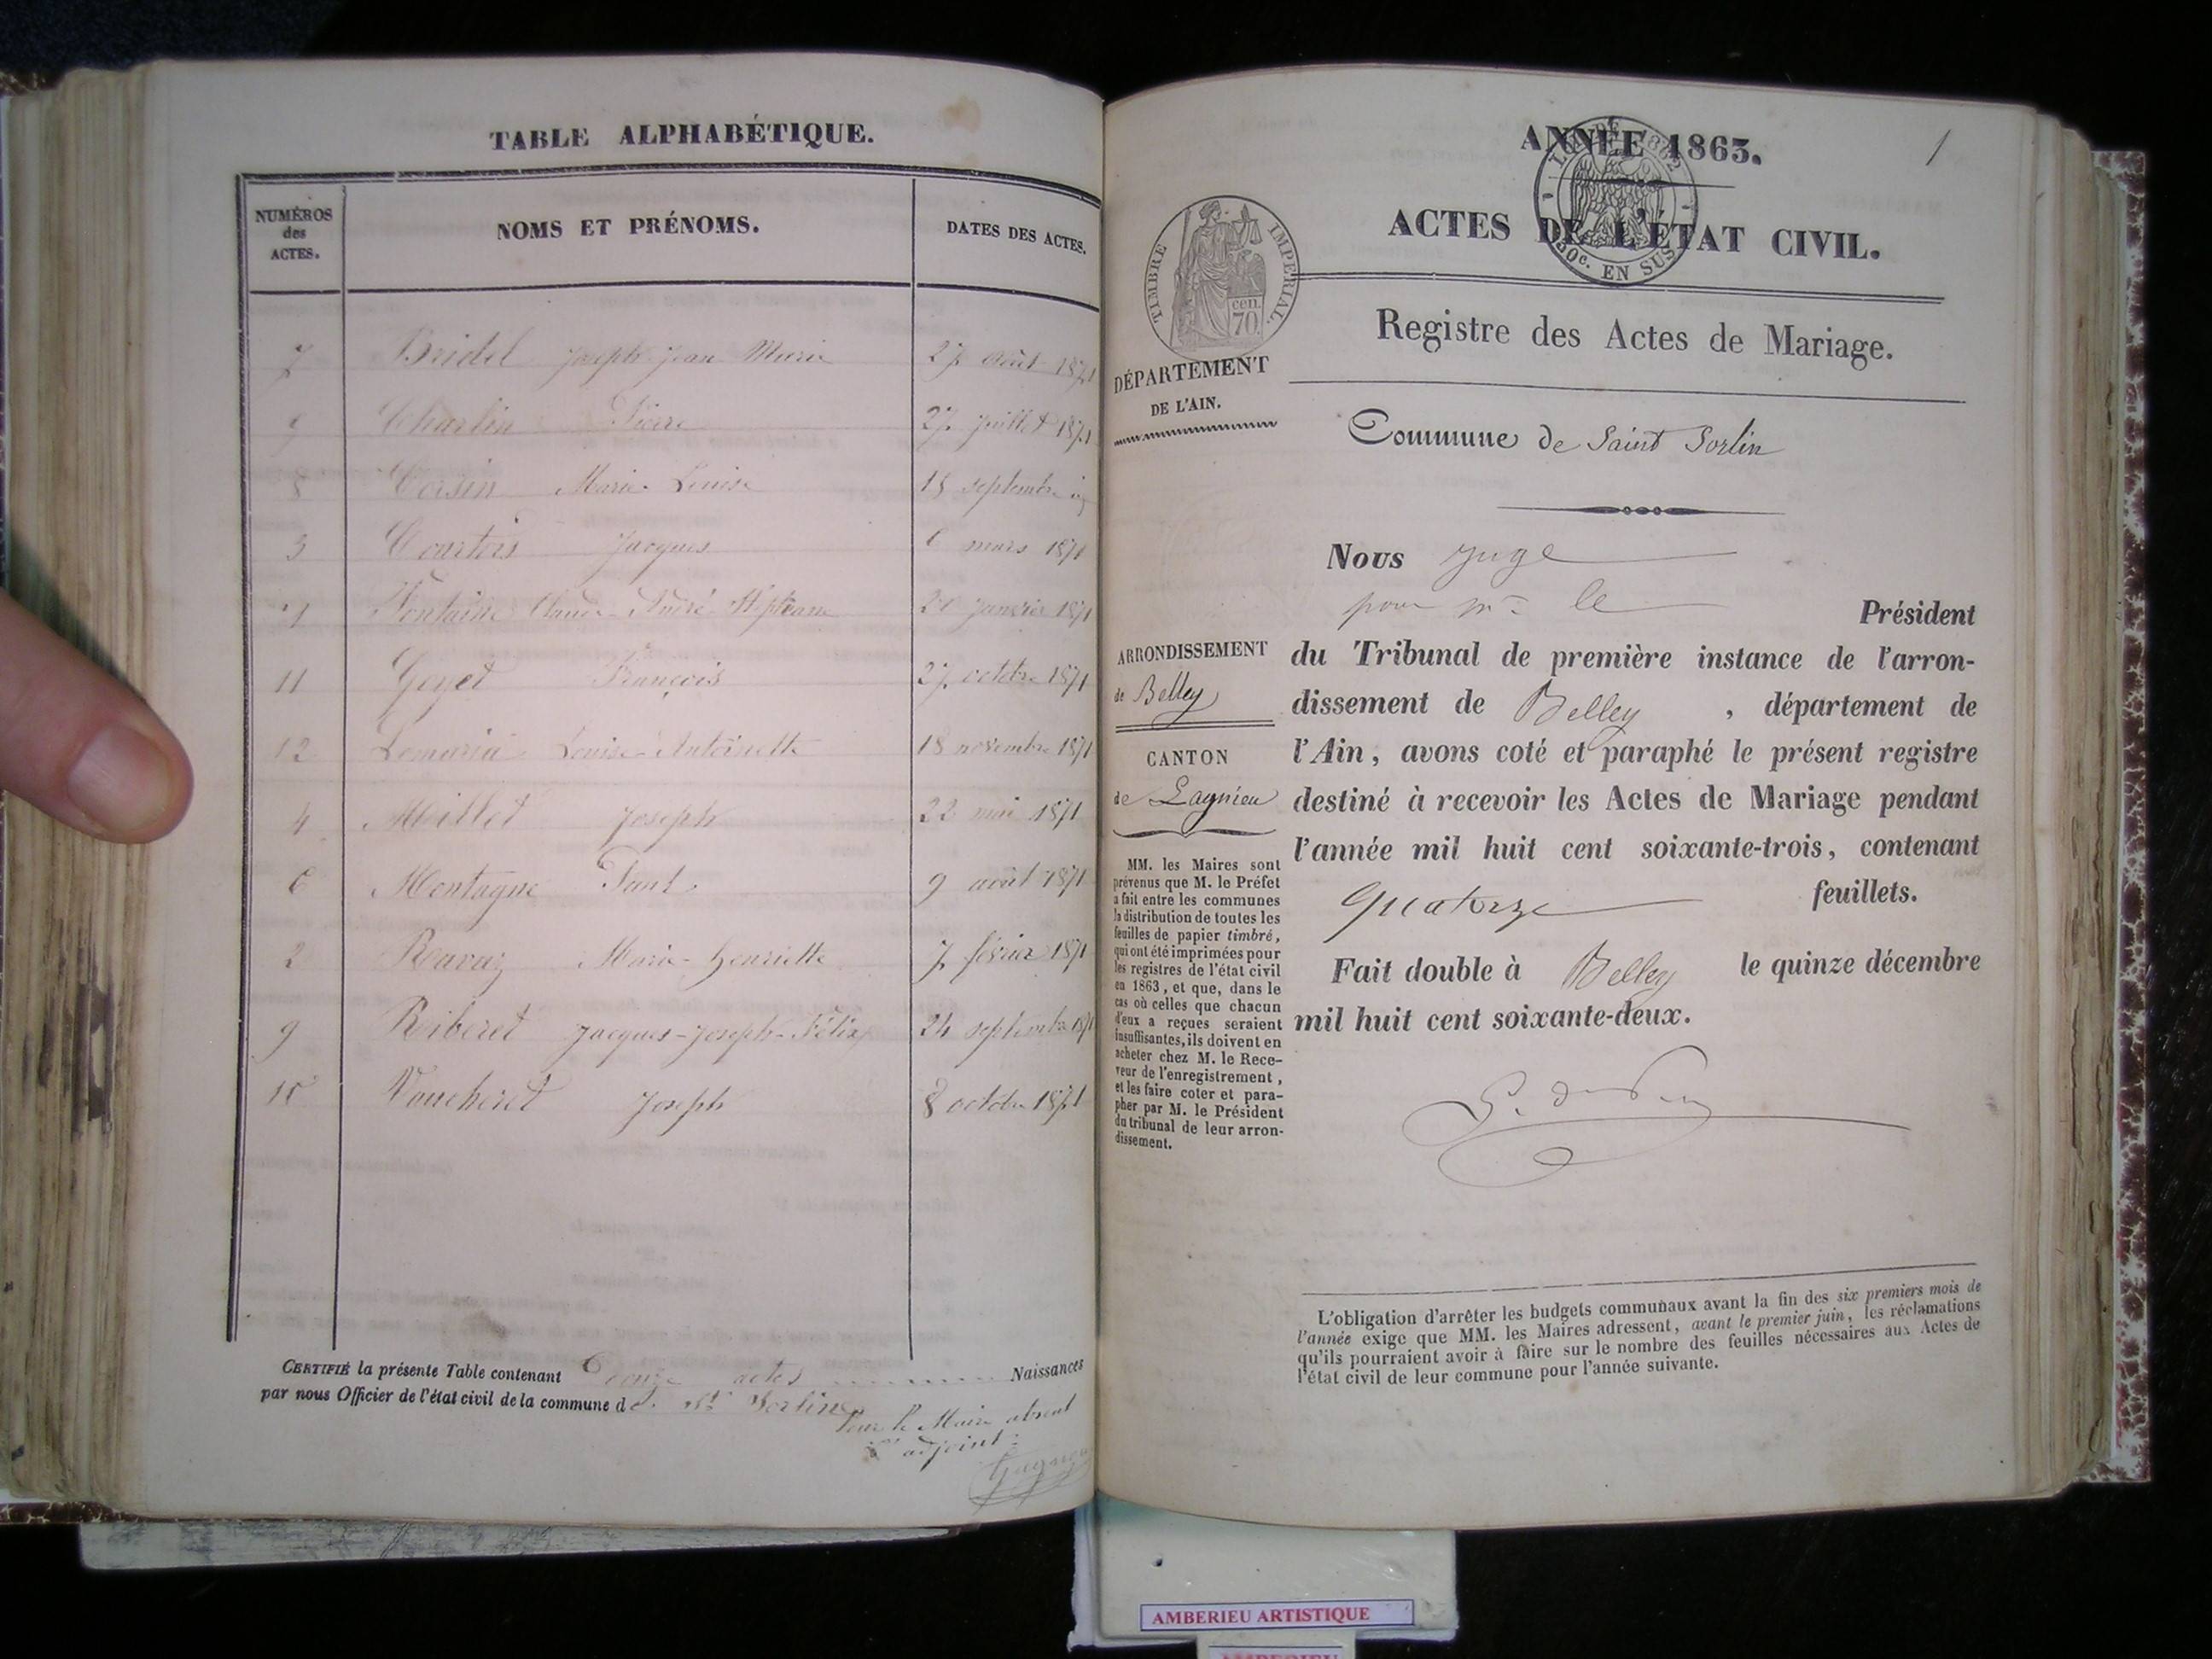 TABLE ALPHABÉTIQUE.
NUMÉROS des ACTES. NOMS ET PRÉNOMS. DATES DES ACTES.
7 Bridel Joseph Jean Marie 27 août 1871
Charlin Pierre 27 juillet 1871
8 Corsin Marie Louise 18 septembre
3 Courtois Jacques 6 mars 1871
Fontaine Claude-André-Stéphane janvier 1871
11 Goyet François 27 octobre 1871
12 Lemaria Louise-Antoinette 18 novembre 1871
4 Meillet Joseph 22 mai 1871
6 Montagne Paul 9 août 1871
2 Ravaz Marie-Henriette 7 février 1871
9 Riberet Jacques-Joseph-Félix 24 septembre 1871
10 Vaucheret Joseph 8 octobre 1871
CERTIFIÉ la présente Table contenant actes Naissances
par nous Officier de l'état civil de la commune de St Sorlin
Pour le Maire absent
adjoint:
1
ANNÉE 1863.
LOI DE 1862
50c. EN SUS
ACTES DE L'ÉTAT CIVIL.
TIMBRE IMPÉRIAL.
cen. 70.
Registre des Actes de Mariage.
DÉPARTEMENT
DE L'AIN.
Commune de Saint Sorlin
Nous juge
pour mr le Président
ARRONDISSEMENT
de Belley
CANTON
de Lagnieu
du Tribunal de première instance de l'arron-
dissement de Belley, département de
l'Ain, avons coté et paraphé le présent registre
destiné à recevoir les Actes de Mariage pendant
l'année mil huit cent soixante-trois, contenant
quatorze feuillets.
Fait double à Belley le quinze décembre
mil huit cent soixante-deux.
MM. les Maires sont
prévenus que M. le Préfet
a fait entre les communes
la distribution de toutes les
feuilles de papier timbré,
qui ont été imprimées pour
les registres de l'état civil
en 1863, et que, dans le
cas où celles que chacun
d'eux a reçues seraient
insuffisantes, ils doivent en
acheter chez M. le Rece-
veur de l'enregistrement,
et les faire coter et para-
pher par M. le Président
du tribunal de leur arron-
dissement.
L'obligation d'arrêter les budgets communaux avant la fin des six premiers mois de
l'année exige que MM. les Maires adressent, avant le premier juin, les réclamations
qu'ils pourraient avoir à faire sur le nombre des feuilles nécessaires aux Actes de
l'état civil de leur commune pour l'année suivante.
AMBERIEU ARTISTIQUE
AMBERIEU